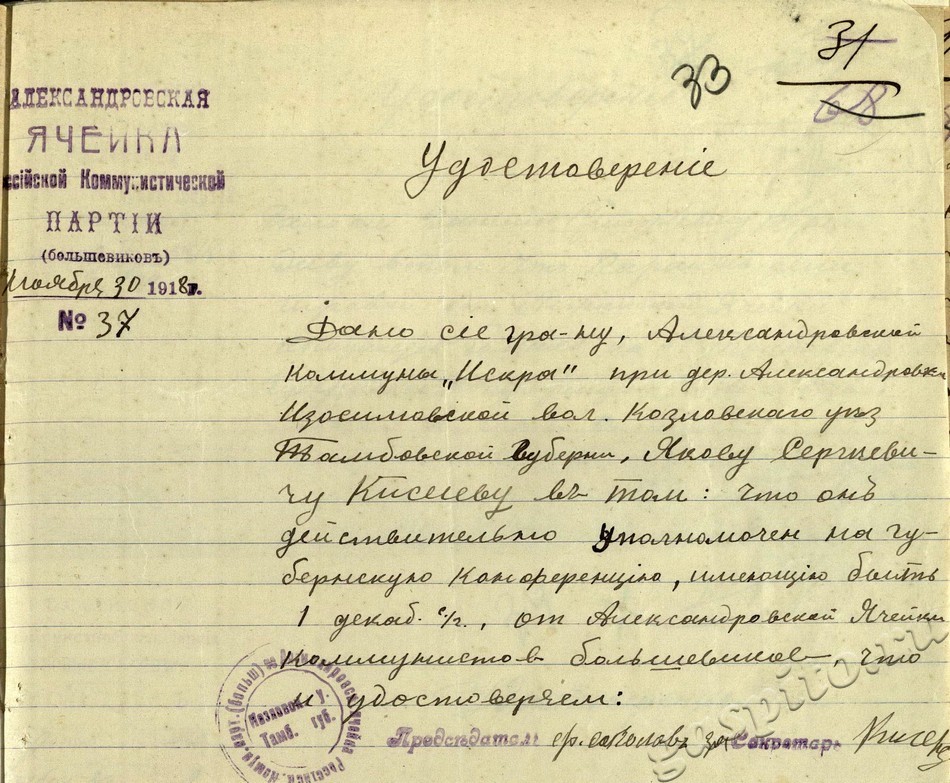 33
31
68
АЛЕКСАНДРОВСКАЯ
ЯЧЕЙКА
ссійской Коммунистической
ПАРТІИ
(большевиковъ)
Ноября 30 1918г.
№ 37
Удостоверенiе
Дано сіе гра-ну, Александровской
Коммуны „Искра" при дер. Александровки
Изосимовской вол. Козловскаго уѣз
Тамбовской Губерни, Якову Сергѣеви-
чу Киселеву въ том: что онъ
действительно уполномочен на гу-
бернскую Конференцію, имеющію быть
1 декаб. с/г., от Александровской Ячейки
Коммунистов большевиков, что
и удостоверяем:
Предсѣдатель Соколовъ за Секретарь
Козловск. у.
Тамб. губ.
gaspito.ru